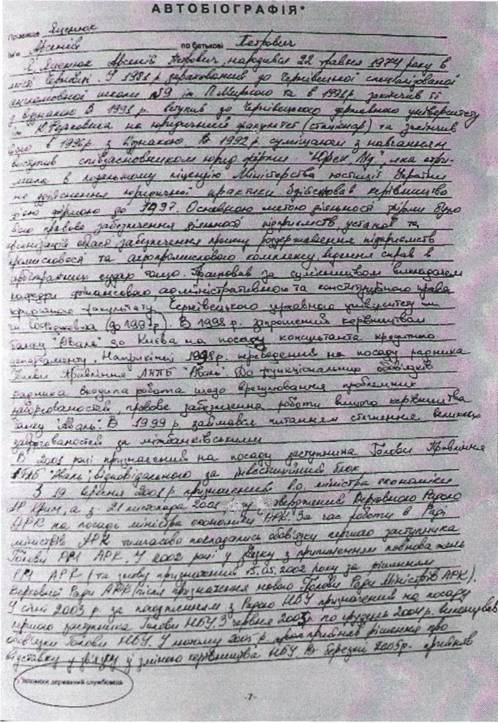 АВТОБІОГРАФІЯ*
Яценюк
Арсеній по батькові Петрович
Я, Яценюк Арсеній Петрович народився 22 травня 1974 року в
місті Чернівці. У 1981 р зарахований до Чернівецької спеціалізованої
школи №9 ім. та в 1991р закінчив її
з відзнакою В 1991р. вступив до Чернівецького державного університету
ім. Ю.Федьковича на юридичний факультет (стаціонар) та закінчив
його в 1996р з відзнакою. В 1992р сумісництвом з навчанням
виступив співзасновником юрид фірми "Юрек Лтд", яка отри-
мала в подальшому ліцензію Міністерства юстиції України
на здійснення юридичної практики. Здійснював керівництво
цією фірмою до 1997. Основною метою діяльності фірми було
правове забезпечення діяльності підприємств, установ та
організацій області, забезпечення процесу роздержавлення підприємств
промисловості та агропромислового комплексу, ведення справ в
судах тощо. Працював за сумісництвом викладачем
кафедри фінансового, адміністративного та конституційного права
юридичного факультету Чернівецького державного університету ім.
Ю.Федьковича (до 1997р). В 1998р. запрошений керівництвом
банку "Аваль" до Києва на посаду консультанта кредитного
департаменту. Наприкінці 1998р. переведений на посаду радника
Голови Правління АППБ "Аваль". До функціональних обов'язків
радника входила робота щодо врегулювання проблемних
заборгованостей, правове забезпечення роботи вищого керівництва
банку "Аваль". В 1999р. займався питанням стягнення великих
заборгованостей за міжбанківськими
В 2001 році призначений на посаду заступника Голови Правління
АППБ "Аваль", відповідального за блок
З 19 вересня 2001р призначений в.о. міністра економіки
АР Крим, а з 21 листопада 2001 року затверджений Верховною Радою
АРК на посаді міністра економіки АРК. За час роботи в Раді
міністрів АРК тимчасово покладались обов'язки першого заступника
Голови РМ АРК. У 2002 році у зв'язку з припиненням повноважень
РМ АРК (та знову призначений 15.05.2002 року за рішенням
Верховної Ради АРК після призначення нового Голови Ради Міністрів АРК).
У січні 2003р за погодженням з Радою НБУ призначений на посаду
першого заступника Голови НБУ. З червня 2003р по грудень 2004р. виконував
обов'язки Голови НБУ. У лютому 2005р рішення про
відставку у зв'язку зі зміною керівництва НБУ. В березні 2005р. прийняв
* Заповнює державний службовець
-7-